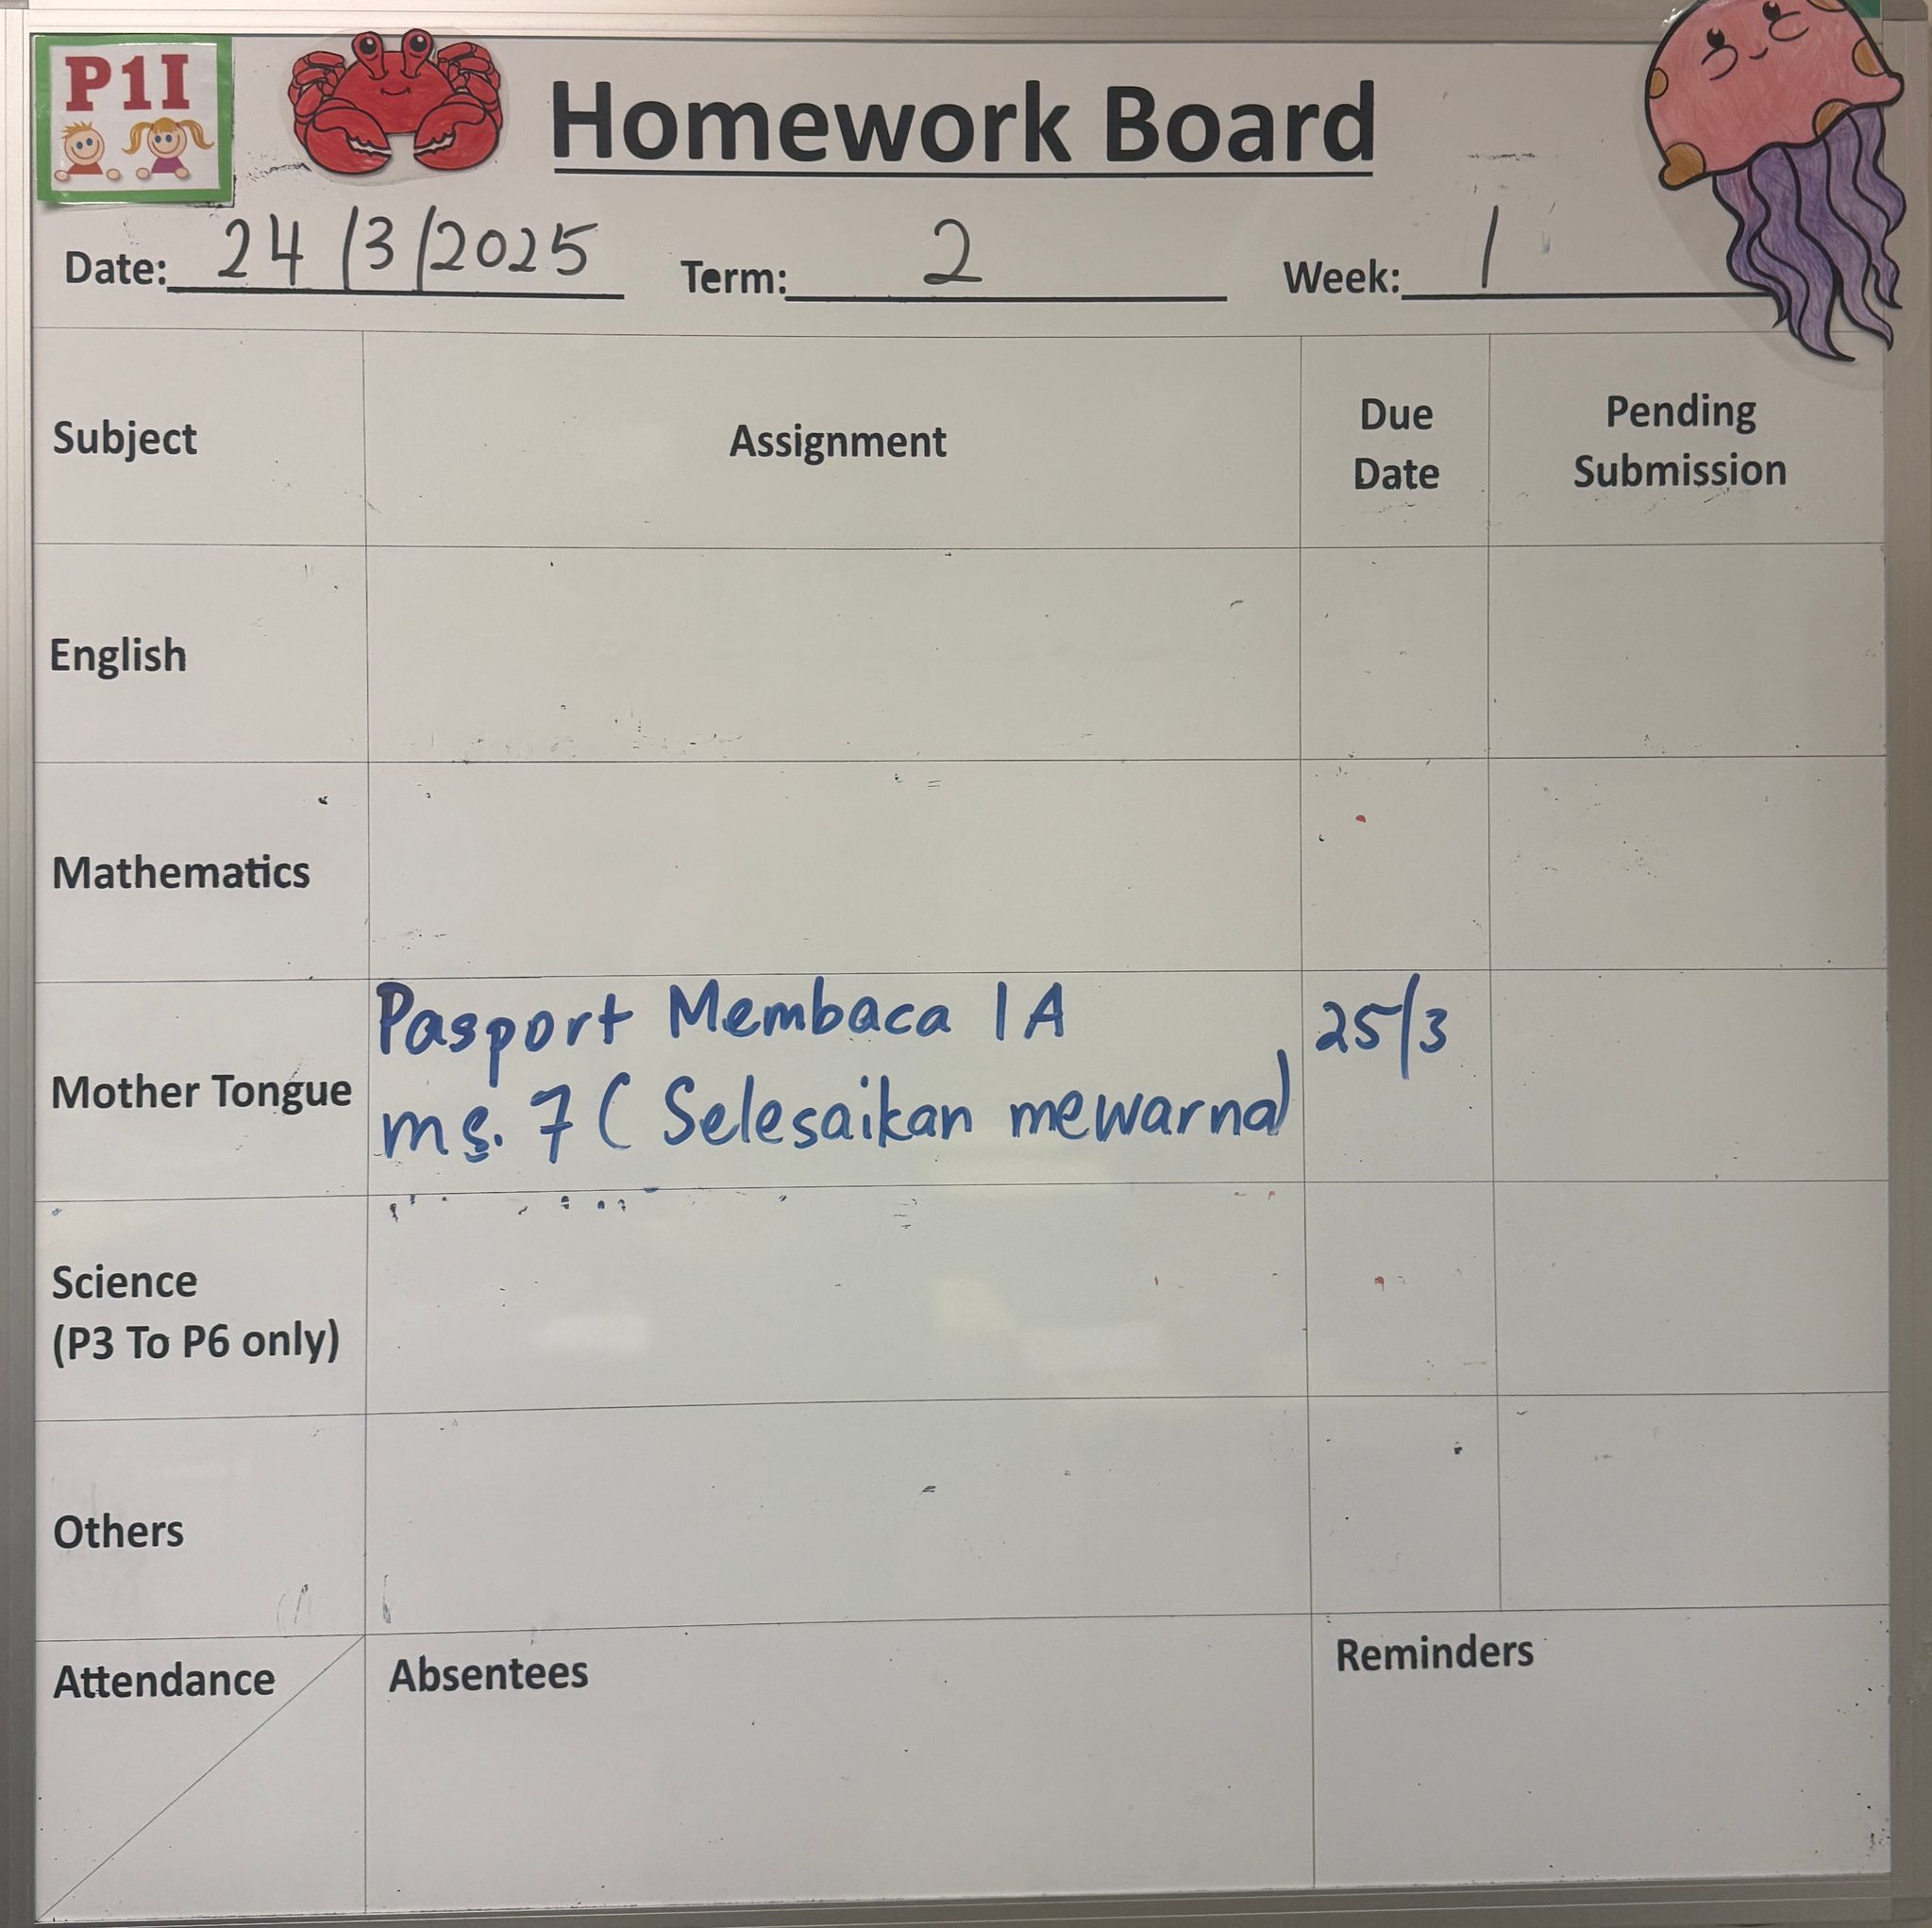 P1I
Homework Board
Date: 24/3/2025 Term: 2 Week: 1
Subject Assignment Due Date Pending Submission
English
Mathematics
Mother Tongue
Pasport Membaca 1A 25/3
ms. 7 (Selesaikan mewarna)
Science
(P3 To P6 only)
Others
Attendance Absentees Reminders